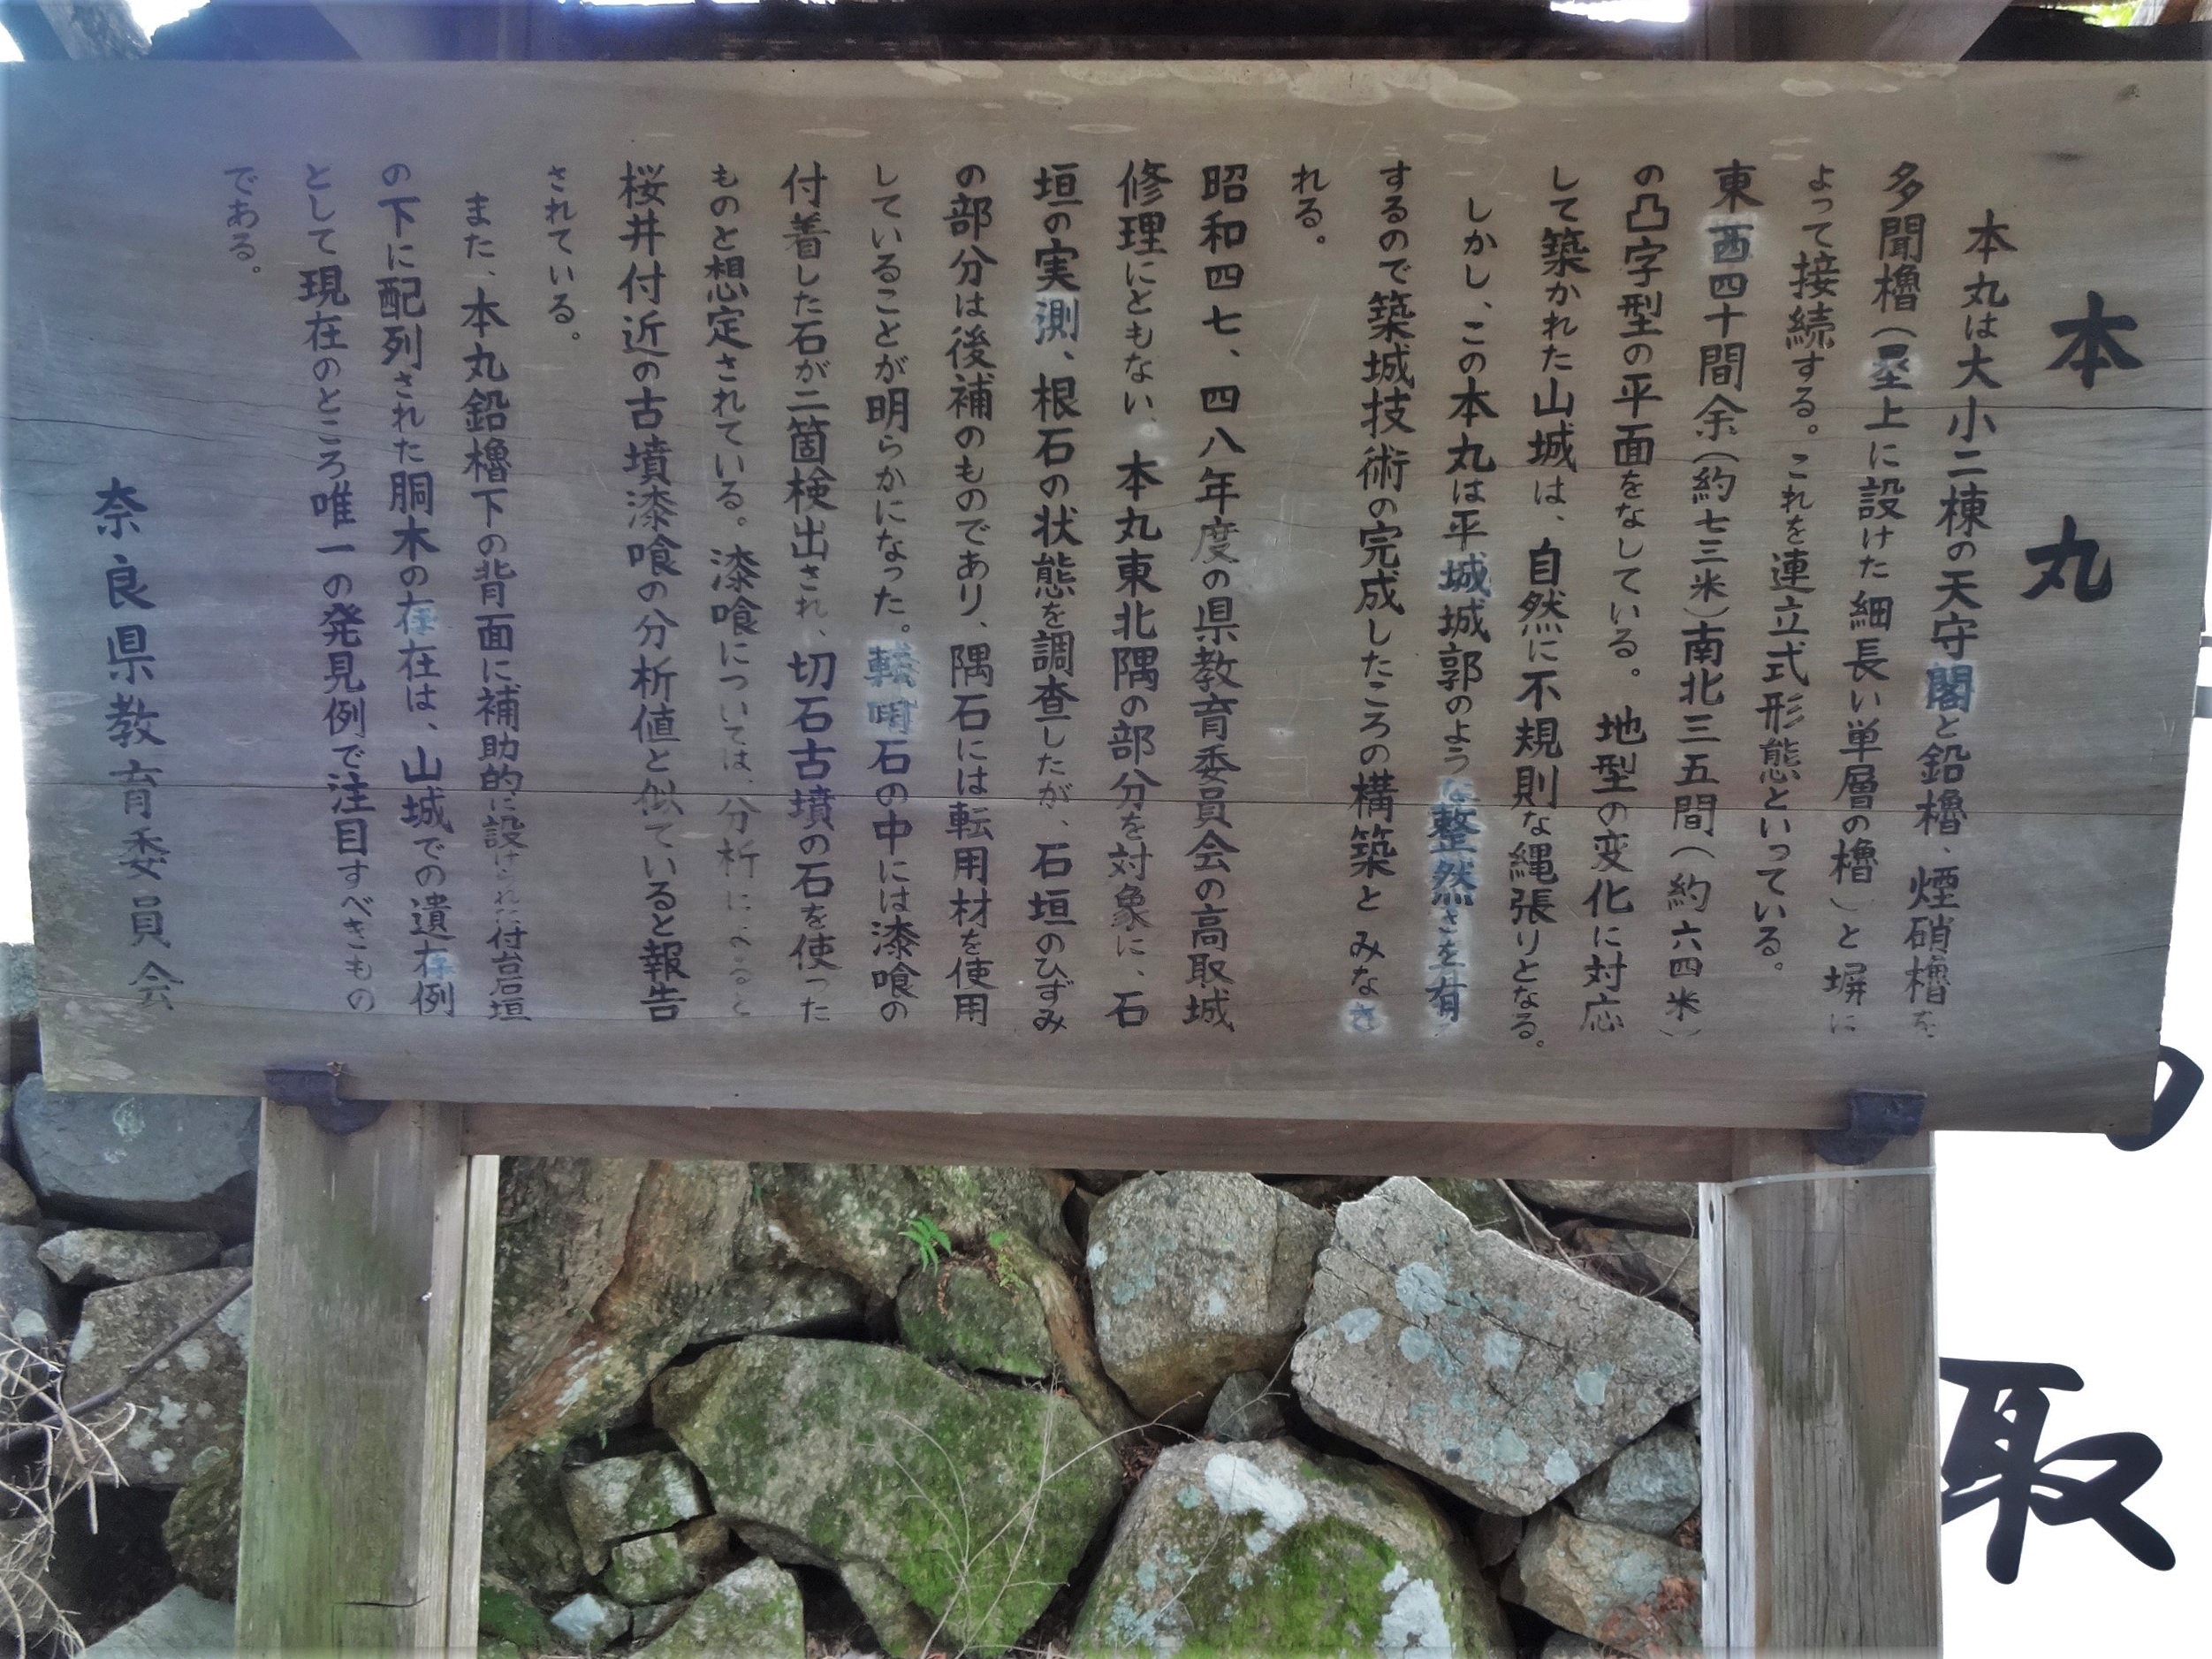 本丸
本丸は大小二棟の天守閣と鉛櫓、煙硝櫓を
多聞櫓(塁上に設けた細長い単層の櫓)と塀に
よって接続する。これを連立式形態といっている。
東西四十間余(約七三米)南北三五間(約六四米)
の凸字型の平面をなしている。地型の変化に対応
して築かれた山城は、自然に不規則な縄張りとなる。
しかし、この本丸は平城城郭のような整然さを有
するので築城技術の完成したころの構築とみなさ
れる。
昭和四七、四八年度の県教育委員会の高取城
修理にともない、本丸東北隅の部分を対象に、石
垣の実測、根石の状態を調査したが、石垣のひずみ
の部分は後補のものであり、隅石には転用材を使用
していることが明らかになった。転用石の中には漆喰の
付着した石が二箇検出され、切石古墳の石を使った
ものと想定されている。漆喰については、分析によると
桜井付近の古墳漆喰の分析値と似ていると報告
されている。
また、本丸鉛櫓下の背面に補助的に設けられた付台石垣
の下に配列された胴木の存在は、山城での遺存例
として現在のところ唯一の発見例で注目すべきもの
である。
奈良県教育委員会
取